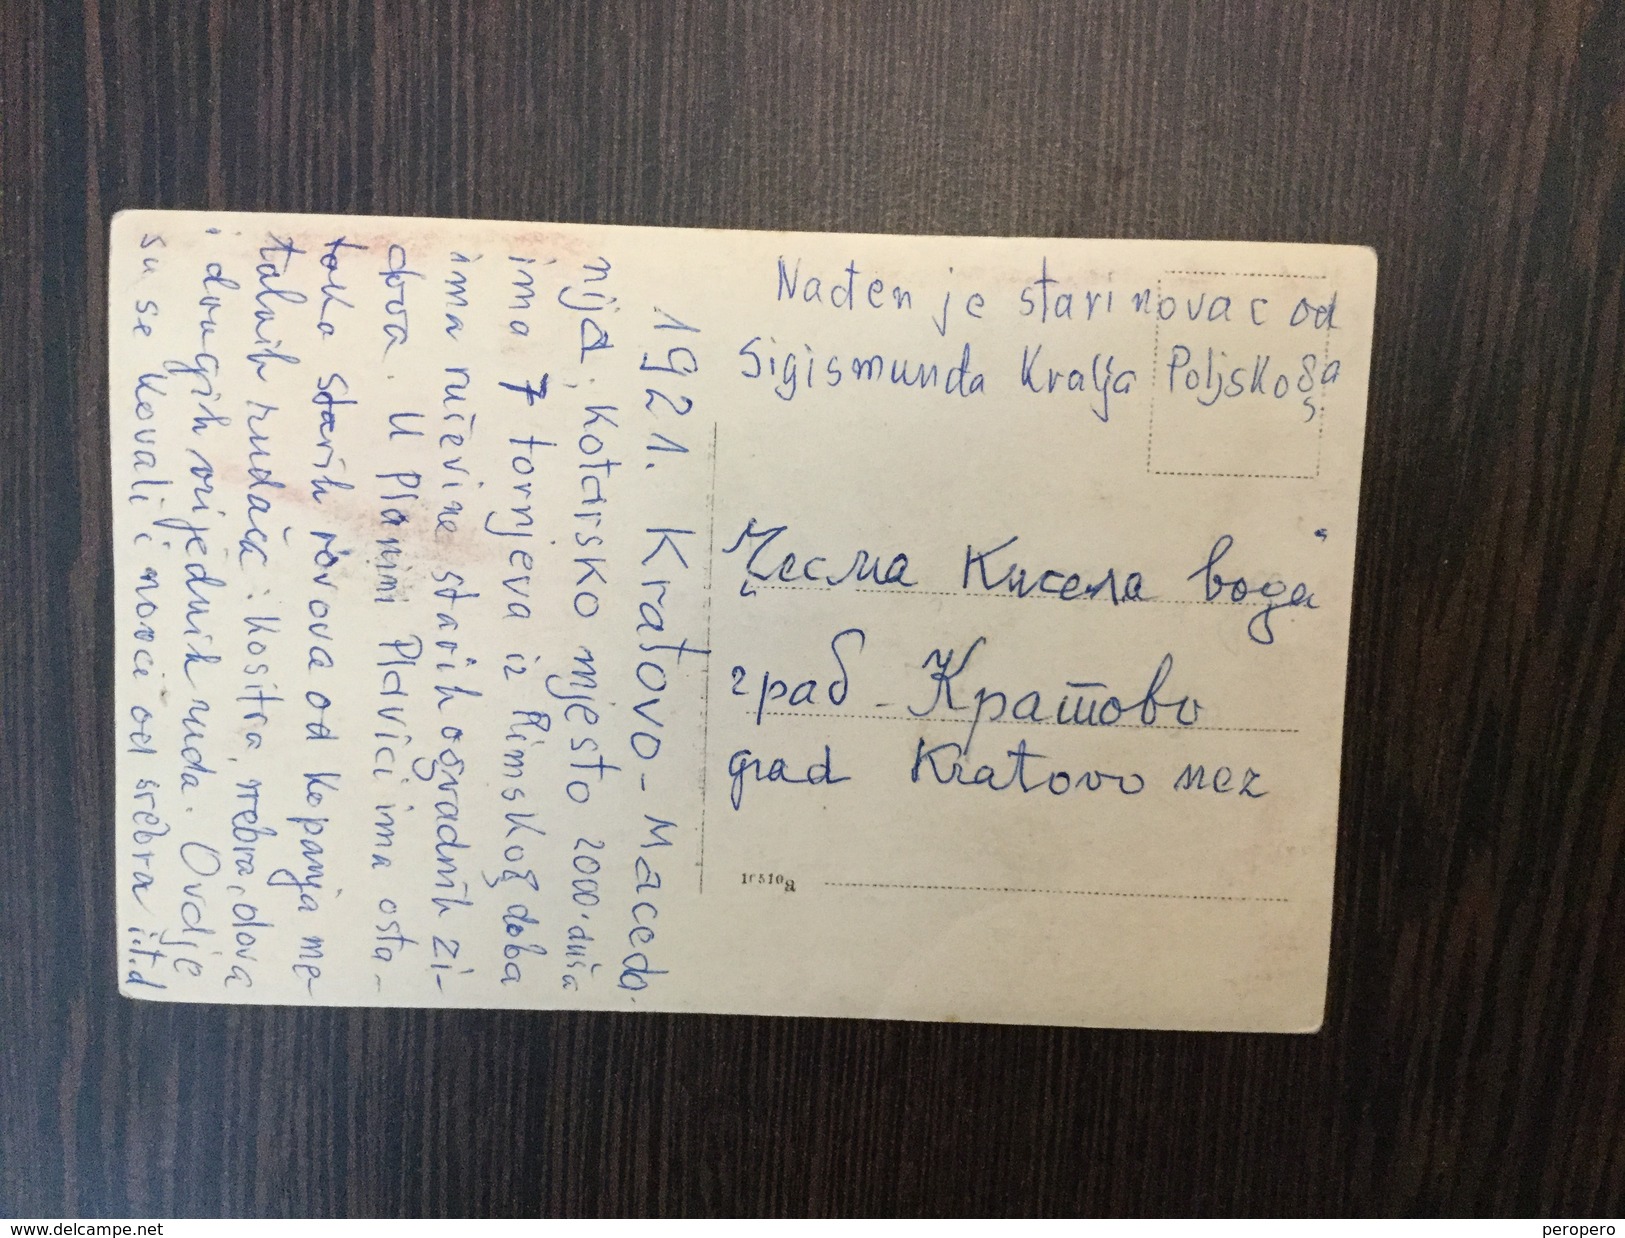 1921. Kratovo - Macedo-
nija, Kotarsko mjesto 2000. duša
ima 7 tornjeva iz Rimskog doba
ima ruševine starih ogradnih zi-
dova. U planini Plavici ima osta-
taka starih rovova od kopanja me-
talnih rudača: kositra, srebra, olova
i drugih vrijednih ruda. Ovdje
su se kovali i novci od srebra i.t.d
Nađen je stari novac od
Sigismunda Kralja Poljskoga
„Чесма Кисела вода"
град - Кратово
grad Kratovo
10510a
www.delcampe.net
peropero